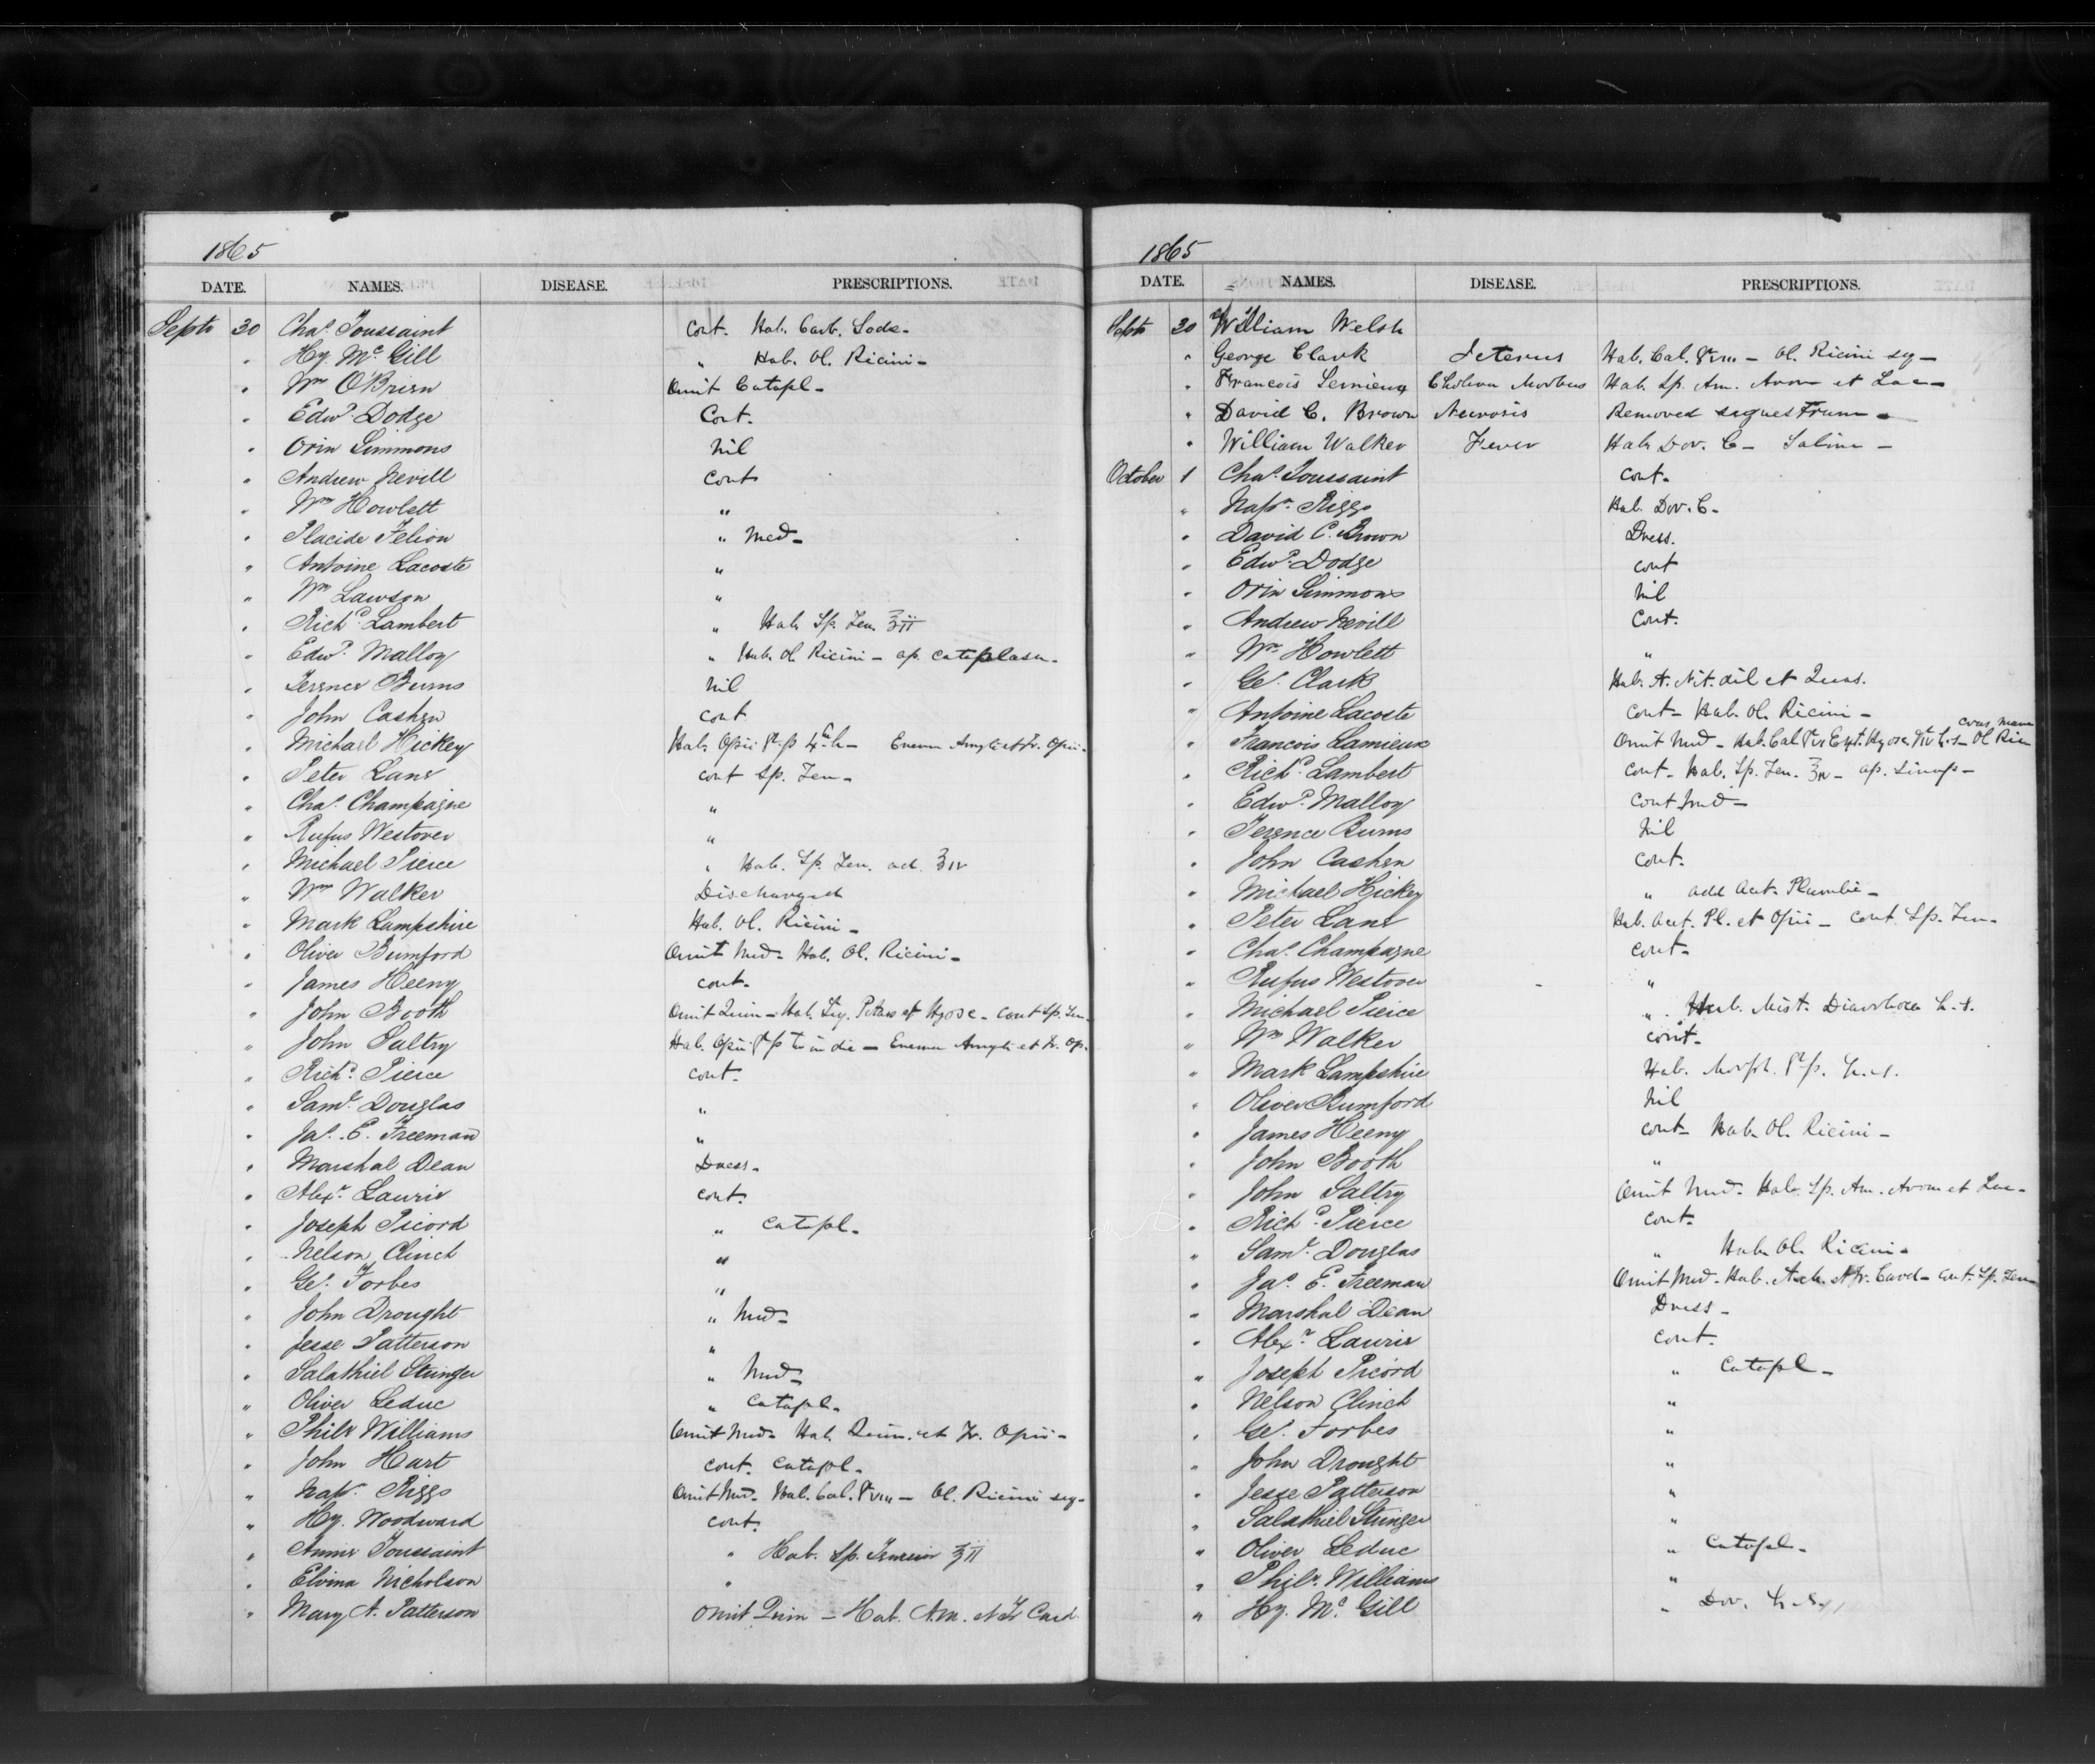 1865
DATE. NAMES. DISEASE. PRESCRIPTIONS.
Septr 30 Chas. Toussaint Cont. Hab. Carb. Soda-
" Hy. McGill " Hab. Ol. Ricini-
" Wm O'Brien Omit Catapl-
" Edwd. Dodge Cont.
" Orin Simmons Nil
" Andrew Nevill Cont
" Wm Howlett "
" Placide Felion " Med-
" Antoine Lacoste "
" Wm Lawson "
" Richd. Lambert " Hab Sp. Jen. ʒii
" Edwd. Malloy " Hab. Ol Ricini- ap. Cataplasm-
" Terence Burns Nil
" John Cashen Cont
" Michael Hickey Hab. Opii Enema Amyli et Tr. Opii-
" Peter Lane Cont Sp. Jen-
" Chas. Champagne "
" Rufus Westover "
" Michael Pierce " Hab. Sp. Jen. ad ʒiv
" Wm Walker Discharged
" Mark Lampshire Hab. Ol. Ricini-
" Oliver Bumford Omit Med- Hab. Ol. Ricini-
" James Heeny Cont-
" John Booth Omit Quin- Hab. Liq. Potass et Hyosc- Cont Sp. Jen-
" John Saltry Hab. Opii in die- Enema Amyli et Tr. Op.
" Richd. Pierce Cont-
" Saml. Douglas "
" Jas. E. Freeman "
" Marshal Dean Dress-
" Alexr. Laurie Cont.
" Joseph Picord " Catapl-
" Nelson Clinch "
" Geo. Forbes "
" John Drought " Med-
" Jesse Patterson "
" Salathiel Stringer " Med-
" Oliver Leduc " Catapl-
" Philr Williams Omit Med- Hab. Quin. et Tr. Opii-
" John Hart Cont. Catapl-
" Napn. Riggs Omit Med- Hab. Cal. gr viii- Ol. Ricini seq-
" Hy. Woodward Cont.
" Annie Toussaint " Hab. Sp. ʒii
" Elvina Nicholson "
" Mary A. Patterson Omit Quin- Hab. Am. et Tr Card
1865
DATE. NAMES. DISEASE. PRESCRIPTIONS.
Septr 30 William Welsh
" George Clark Icterus Hab. Cal. gr viii- Ol. Ricini seq-
" Francois Lemieux Cholera Morbus Hab. Sp. Am. Arom et Lac-
" David C. Brown Necrosis Removed
" William Walker Fever Hab Dov. C- Salin-
October 1 Chas. Toussaint Cont.
" Napn. Riggs Hab. Dov. C-
" David C. Brown Dress.
" Edwd. Dodge Cont
" Orin Simmons Nil
" Andrew Nevill Cont.
" Wm Howlett "
" Geo. Clark Hab. A. Nit. dil et
" Antoine Lacoste Cont- Hab. Ol. Ricini-
" Francois Lamieux Omit Med- Hab. Cal gr v Ext. Hyosc gr iv h.s- Ol Ric cras mane
" Richd. Lambert Cont- Hab. Sp. Jen. ʒiv- ap. Sinap-
" Edwd. Malloy Cont Med-
" Terence Burns Nil
" John Cashen Cont-
" Michael Hickey " add Acet. Plumbi-
" Peter Lane Hab. Acet. Pl. et Opii- Cont Sp. Jen-
" Chas. Champagne Cont-
" Rufus Westover "
" Michael Pierce " Hab. Mist. Diarrhoea h.s.
" Wm Walker Cont-
" Mark Lampshire Hab. Morph. h.s.
" Oliver Bumford Nil
" James Heeny Cont- Hab. Ol. Ricini-
" John Booth "
" John Saltry Omit Med- Hab. Sp. Am. Arom et Lac-
" Richd. Pierce Cont-
" Saml. Douglas " Hab Ol. Ricini-
" Jas. E. Freeman Omit Med- Hab. et Tr. Card- Cont. Sp. Jen
" Marshal Dean Dress-
" Alexr. Laurie Cont.
" Joseph Picord " Catapl-
" Nelson Clinch "
" Geo. Forbes "
" John Drought "
" Jesse Patterson "
" Salathiel Stringer "
" Oliver Leduc " Catapl-
" Philr. Williams "
" Hy. McGill " Dov. h.s.